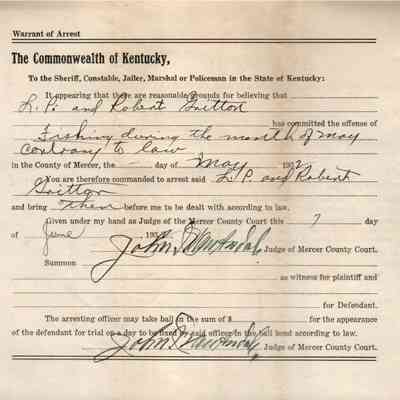 Warrant of Arrest
The Commonwealth of Kentucky,
To the Sheriff, Constable, Jailer, Marshal or Policeman in the State of Kentucky:
It appearing that there are reasonable grounds for believing that
L. P. and Robert Gritton
has committed the offense of
Fishing during the month of may
contrary to law
in the County of Mercer, the — day of May 1932
You are therefore commanded to arrest said L. P. and Robert
Gritton
and bring Them before me to be dealt with according to law.
Given under my hand as Judge of the Mercer County Court this 7 day
of June, 193
John Judge of Mercer County Court.
Summon
as witness for plaintiff and
for Defendant.
The arresting officer may take bail in the sum of $ for the appearance
of the defendant for trial on a day to be fixed by said officer in the bail bond according to law.
John Judge of Mercer County Court.